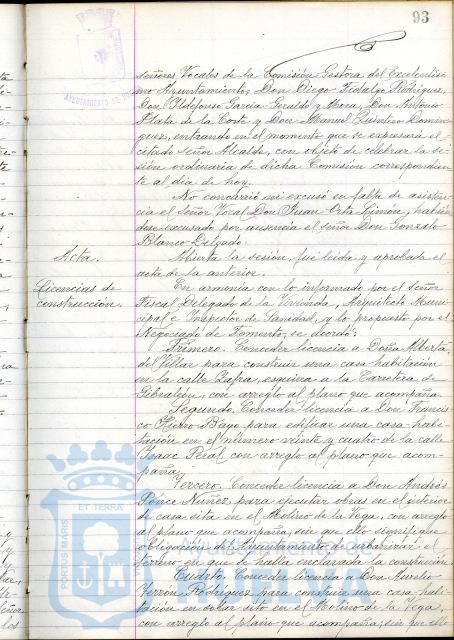 93
señores Vocales de la Comisión Gestora del Excelentísi-
mo Ayuntamiento, Don Diego Fidalgo Rodríguez,
Don Ildefonso García Geraldo y Mora, Don Antonio
Plata de la Corte y Don Manuel Quintero Domín-
guez, entrando en el momento que se expresará el
citado señor Alcalde, con objeto de celebrar la se-
sión ordinaria de dicha Comisión correspondien-
te al día de hoy.
No concurrió ni excusó su falta de asisten-
cia el Señor Vocal Don Juan Orta Limón, habién-
dose excusado por ausencia el señor Don Gonzalo
Blanco Delgado.
Acta.
Abierta la sesión, fué leida y aprobada el
acta de la anterior.
Licencias de
construcción.
En armonía con lo informado por el Señor
Fiscal Delegado de la Vivienda, Arquitecto Muni-
cipal e Inspector de Sanidad, y lo propuesto por el
Negociado de Fomento, se acordó:
Primero. Conceder licencia a Doña Alberta
del Villar para construir una casa habitación
en la calle Zafra, esquina a la Carretera de
Gibraleón, con arreglo al plano que acompaña.
Segundo. Conceder licencia a Don Francis-
co Hierro Bayo para edificar una casa habi-
tación en el número veinte y cuatro de la calle
Isaac Peral, con arreglo al plano que acom-
paña.
Tercero. Conceder licencia a Don Andrés
Ponce Nuñez para ejecutar obras en el interior
de casa sita en el Molino de la Vega, con arreglo
al plano que acompaña, sin que ello signifique
obligación del Ayuntamiento de urbanizar el
terreno en que se halla enclavada la construcción.
Cuarto. Conceder licencia a Don Aurelio
Terron Rodríguez para construir una casa habi-
tación en solar sito en el Molino de la Vega,
con arreglo al plano que acompaña, sin que ello
AYUNTAMIENTO DE
PORTUS MARIS
ET TERRAE
Ayuntamiento de